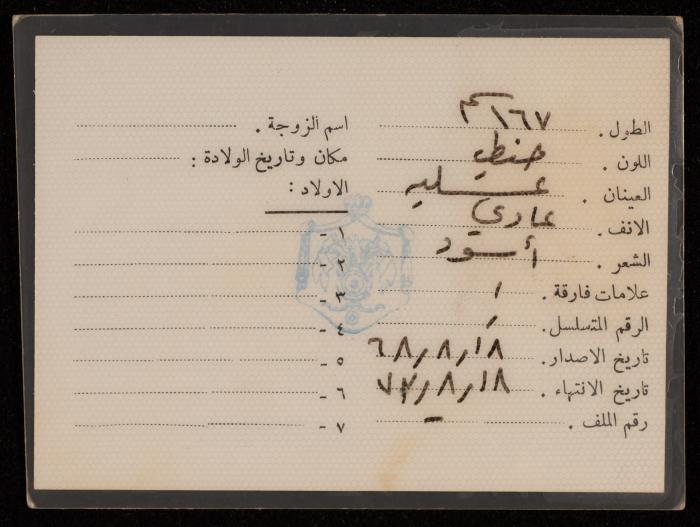 الطول . ١٦٧ سم
اللون . حنطي
العينان . عسليه
الانف . عادي
الشعر . أسود
علامات فارقة . /
الرقم المتسلسل . /
تاريخ الاصدار . ١٨/٨/٦٨
تاريخ الانتهاء . ١٨/٨/٧٣
رقم الملف . -
اسم الزوجة .
مكان وتاريخ الولادة :
الاولاد :
١ -
٢ -
٣ -
٤ -
٥ -
٦ -
٧ -